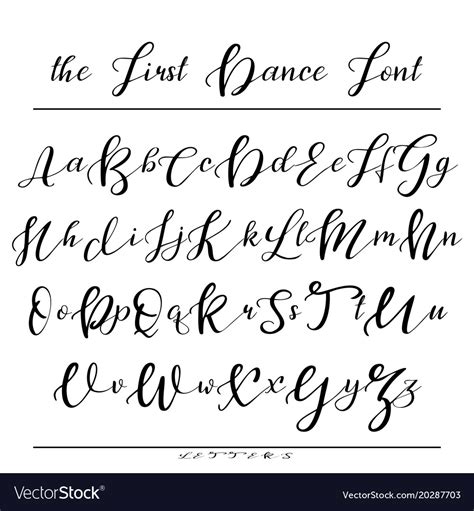 the First Dance Font
AaBbCcDdEeFfGg
HhIiJjKkLlMmNn
OoPpQqRrSsTtUu
VvWwXxYyZz
LETTERS
VectorStock®
VectorStock.com/20287703